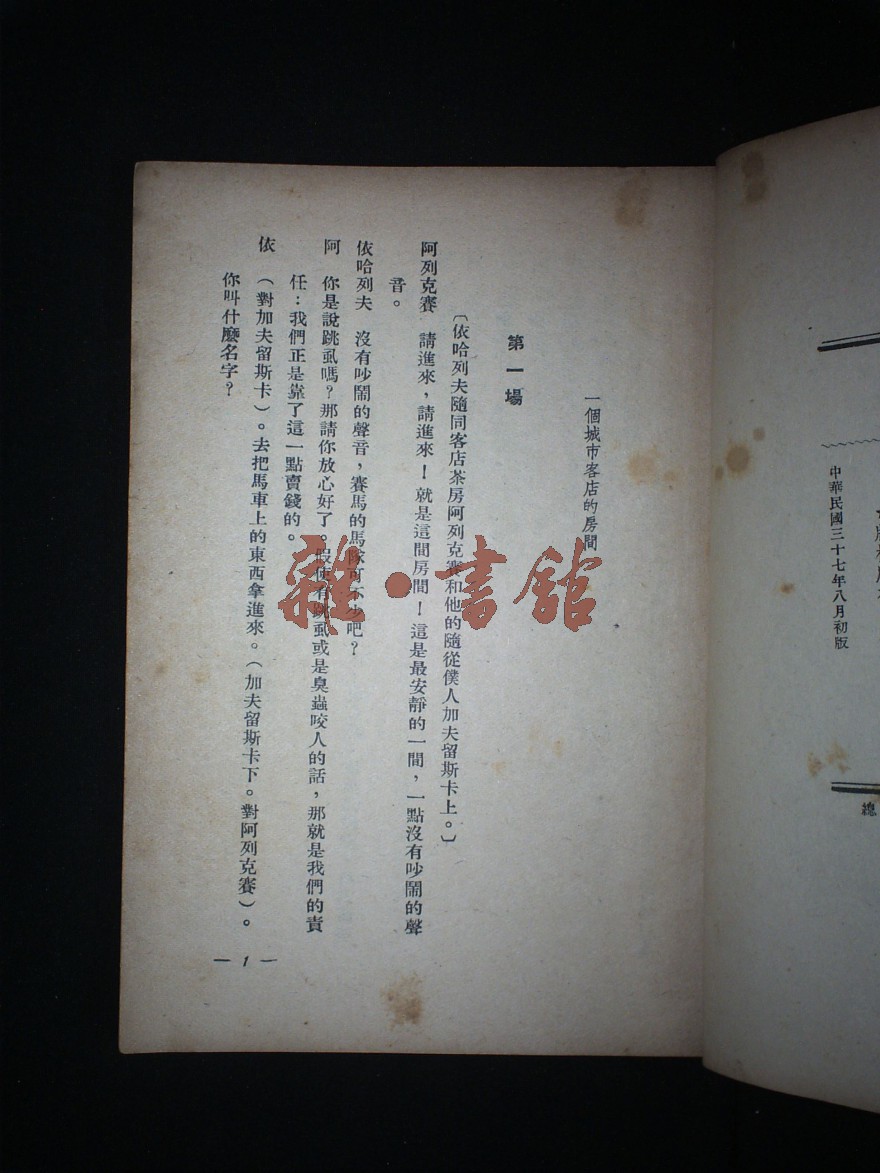 中華民國三十七年八月初版
總
一個城市客店的房間
第一場
〔依哈列夫隨同客店茶房阿列克賽和他的隨從僕人加夫留斯卡上。〕
阿列克賽 請進來，請進來！就是這間房間！這是最安靜的一間，一點沒有吵鬧的聲
音。
依哈列夫 沒有吵鬧的聲音，賽馬的馬隊可不少吧？
阿 你是說跳虱嗎？那請你放心好了。假使有跳虱或是臭蟲咬人的話，那就是我們的責
任：我們正是靠了這一點賣錢的。
依 （對加夫留斯卡）。去把馬車上的東西拿進來。（加夫留斯卡下。對阿列克賽）。
你叫什麼名字？
— 1 —
雜·書館